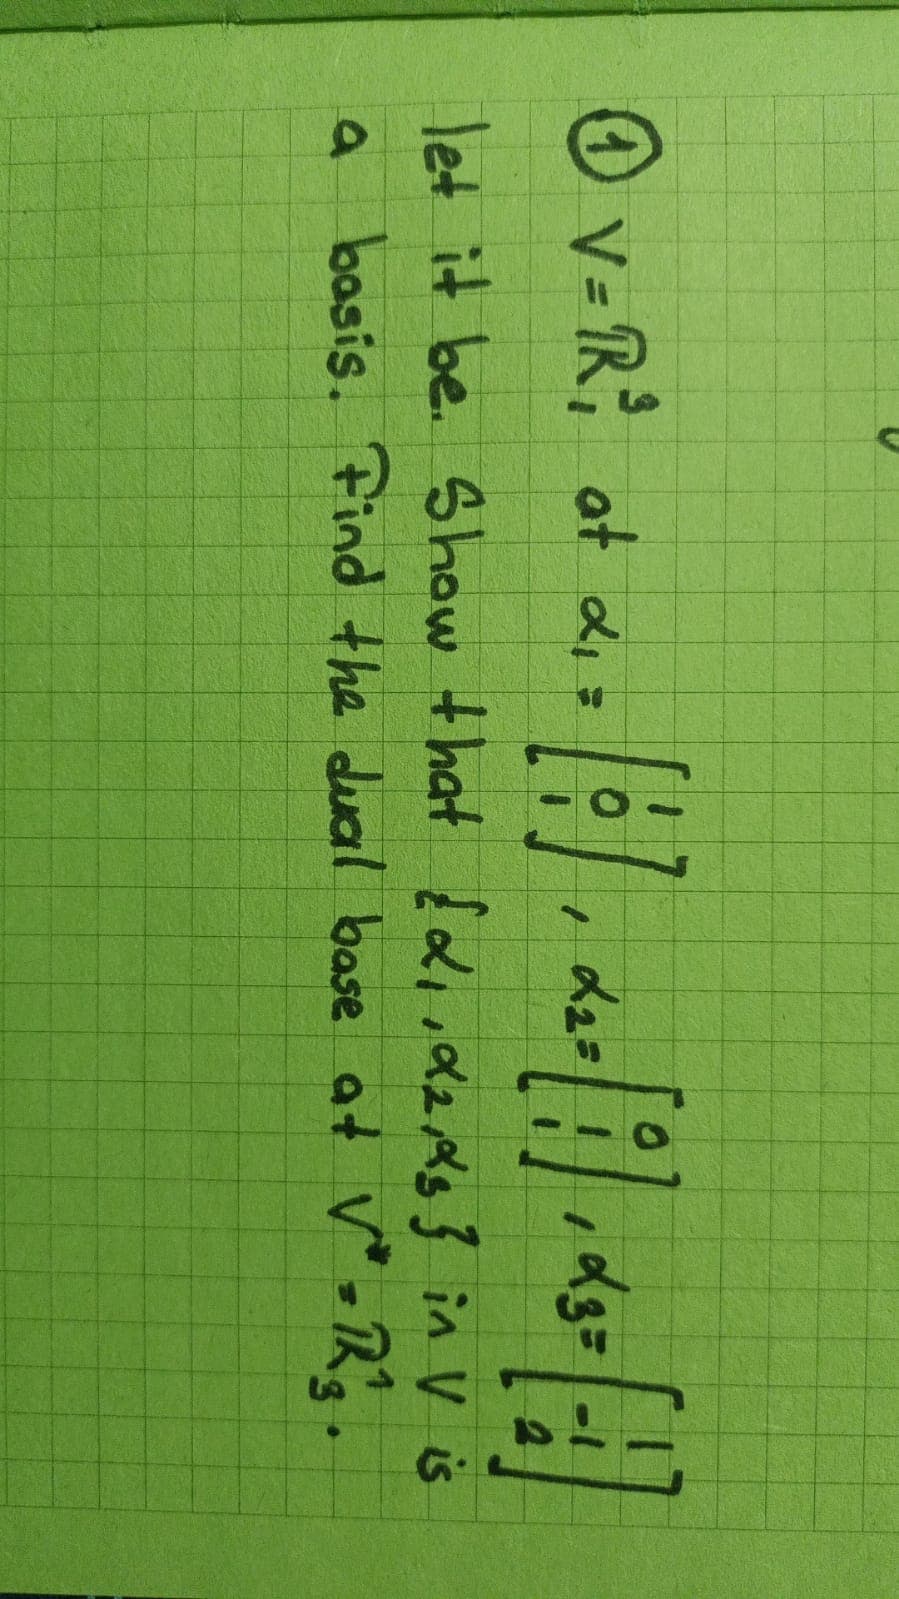 ① V = ℝ³₁ at α₁ = [1 0 1], α₂ = [0 1 1], α₃ = [1 -1 2]
let it be. Show that {α₁, α₂, α₃} in V is
a basis. Find the dual base at V* = ℝ¹₃.